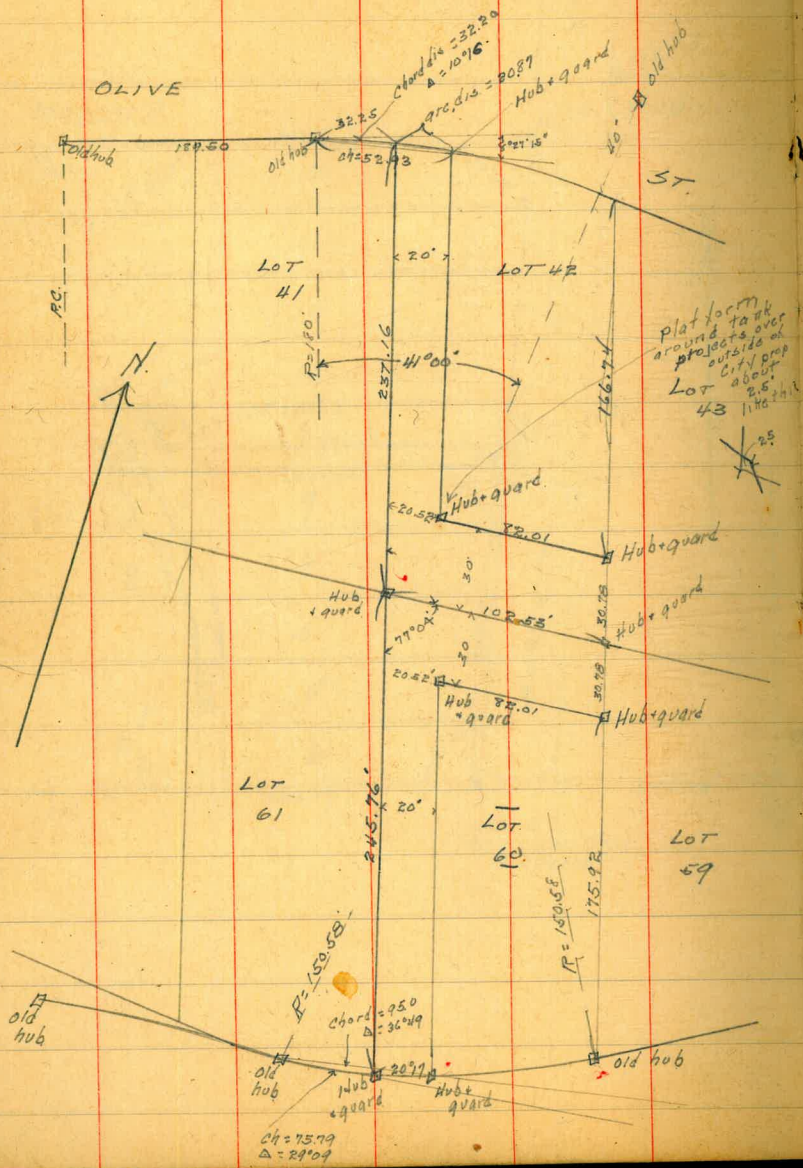 OLIVE
Chord dis = 32.20
Δ = 10°16'
arc dis = 20.87
Hub + guard
Old hub
32.25
Old hub
129.50
Old hub
ch = 52.93
40'
ST.
R.C.
LOT
41
R=180'
20'
LOT 42
41°00'
237.16
166.74
platform
around tank
projects over
outside of
City prop
about
2.5'
like this
LOT
43
25
N.
20.52'
Hub + guard
82.01
Hub + guard
30'
Hub
+ guard
102.53'
30.78
Hub + guard
77°0
30
20.52'
Hub
+ guard
82.01
30.78
Hub + guard
LOT
61
245.76'
20'
LOT
60
LOT
59
R=150.58
175.92
R=150.58'
Chord = 95.0
Δ = 36°49
Old
hub
Old
hub
Hub
+ guard
20.17
Hub +
guard
Old hub
Ch = 75.79
Δ = 29°09